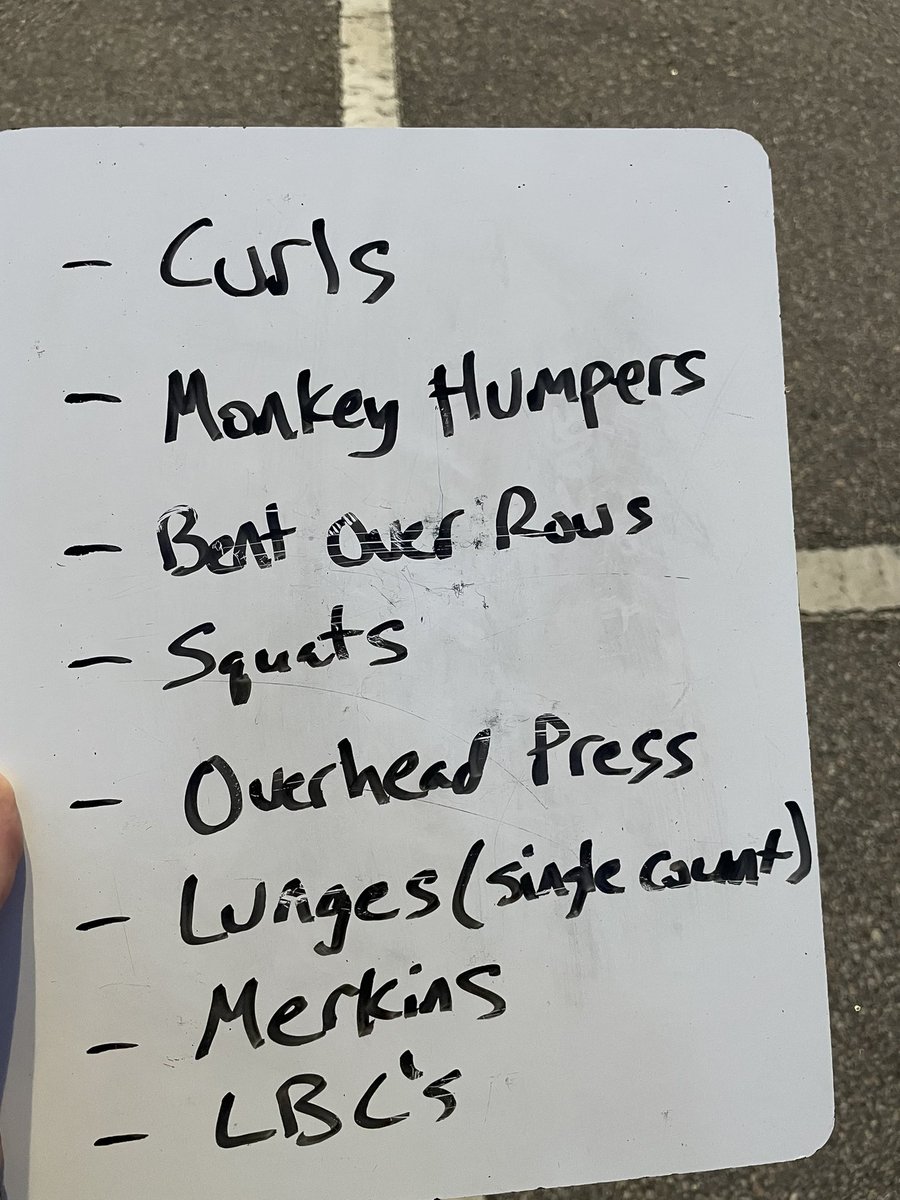 - Curls
- Monkey Humpers
- Bent Over Rows
- Squats
- Overhead Press
- Lunges (single count)
- Merkins
- LBC's